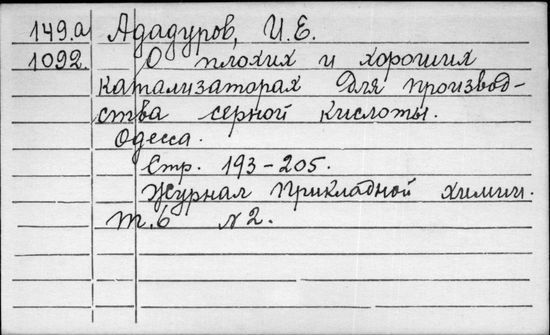 149.а Ададуров, И.Е.
1092. О плохих и хороших
катализаторах для производ-
ства серной кислоты.
Одесса.
Стр. 193-205.
Журнал Прикладной химии.
т.6 № 2.